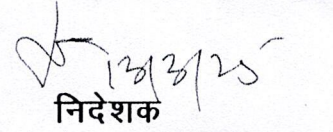 13/3/25
निदेशक